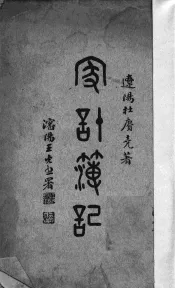 遼陽杜賡堯著
家計簿記
瀋陽王光烈署